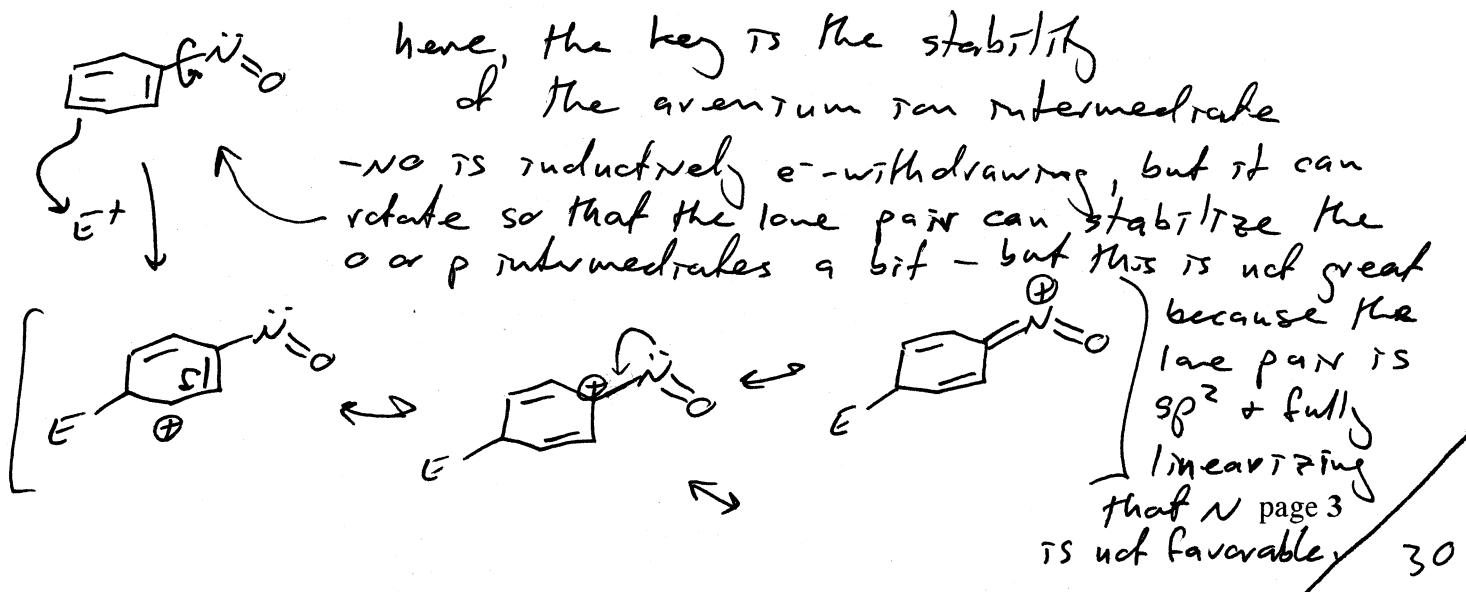 here, the key is the stability
of the arenium ion intermediate
-NO is inductively e⁻-withdrawing, but it can
rotate so that the lone pair can stabilize the
o or p intermediates a bit - but this is not great
because the
lone pair is
sp² + fully
linearizing
that N page 3
is not favorable.
30
N
O
E+
N
O
E
+
+
N
O
E
+
N
O
E